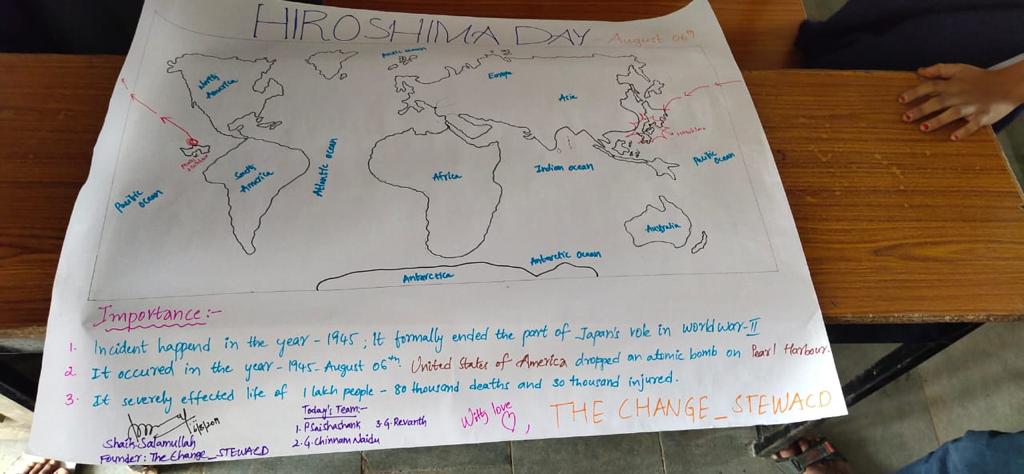 HIROSHIMA DAY - August 06th
North
America
Arctic ocean
Europe
Asia
Pacific
ocean
South
America
Atlantic
ocean
Africa
Indian ocean
Pacific
ocean
Australia
Antarctica
Antarctic ocean
Importance:-
1. Incident happend in the year - 1945; It formally ended the part of Japan's role in world war-II
2. It occured in the year - 1945- August 06th. United States of America dropped an atomic bomb on Pearl Harbour.
3. It severely effected life of 1 lakh people - 80 thousand deaths and 30 thousand injured.
Shaik Salamullah
Founder: The Change_STEWACD
Today's Team:-
1. P.Saishashank 3. G. Revanth
2. G. Chinnam Naidu
With love
THE CHANGE_STEWACD